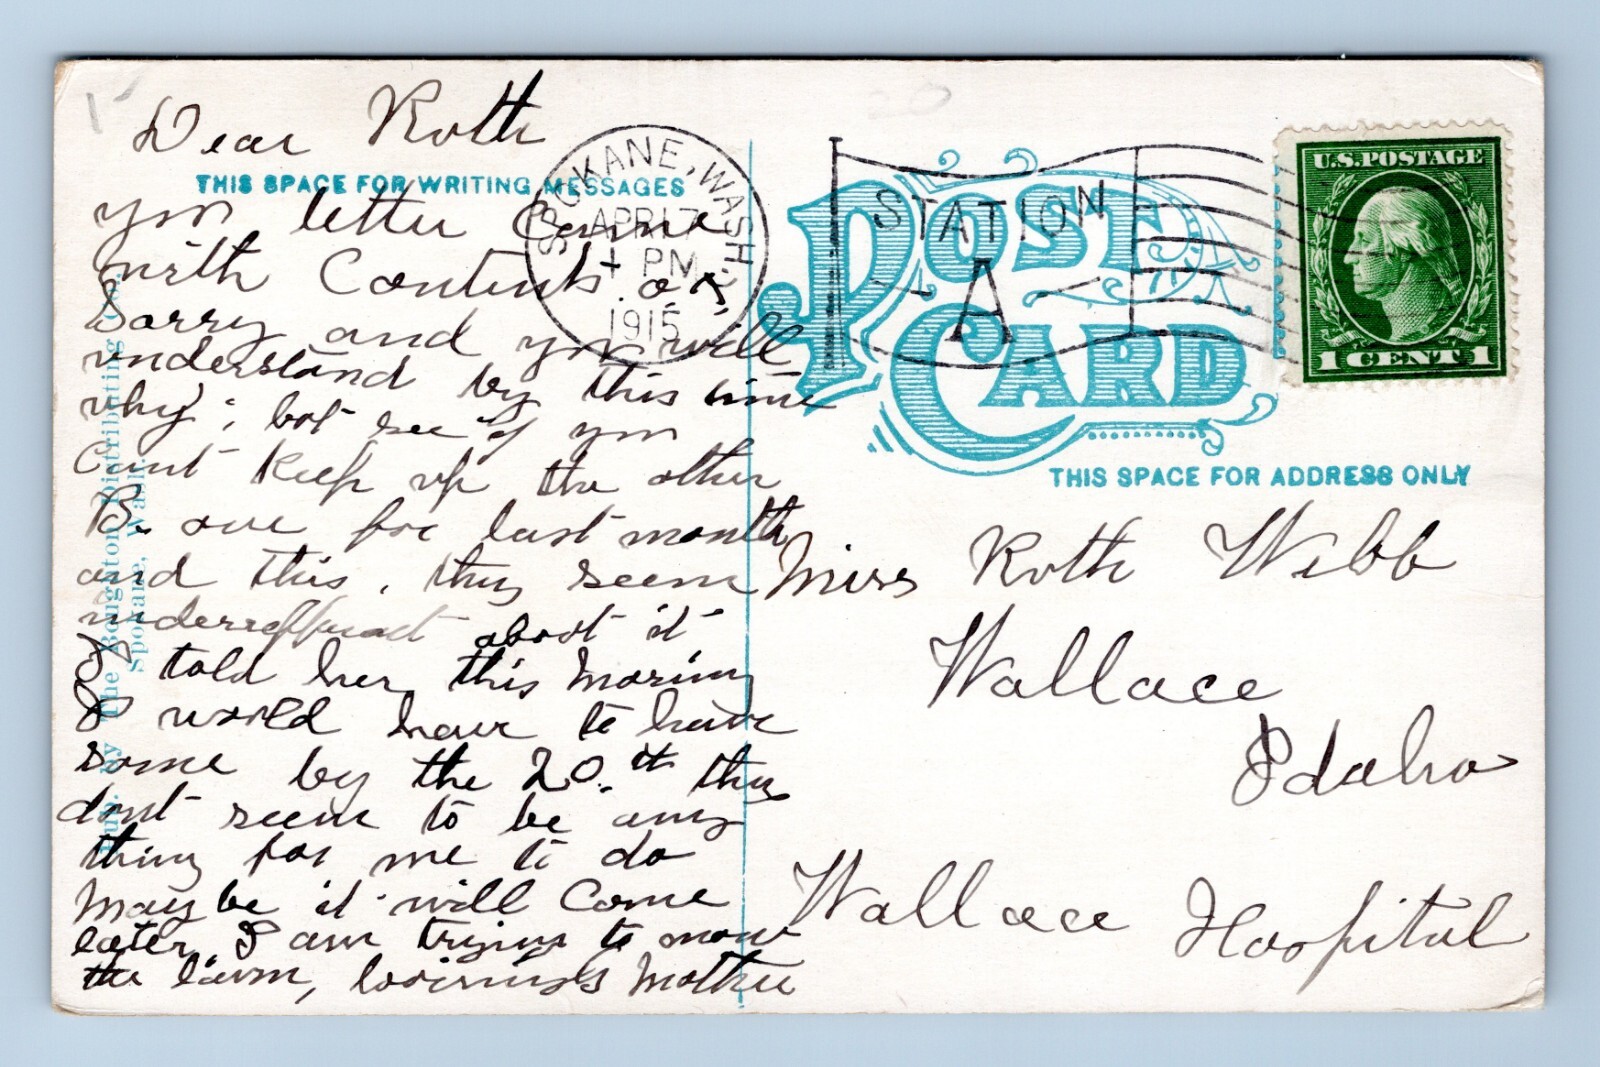 Dear Roth
THIS SPACE FOR WRITING MESSAGES
your letter Came
with Contents ok
Sorry and you will
understand by this time
why; bot see if you
Cant Keep up the other
B. one for last month
and this. they seem
about it
I told her this morning
I world have to have
some by the 20.th they
dont seem to be any
thing for me to do
May be it will Come
later I am trying to mow
the lawn, Mother
Pub. by The Boughton Distributing Co.
Spokane, Wash.
SPOKANE, WASH.
APR 17
PM
1915
STATION
A
POST CARD
U.S. POSTAGE
1 CENT 1
THIS SPACE FOR ADDRESS ONLY
Miss Roth Webb
Wallace
Idaho
Wallace Hospital